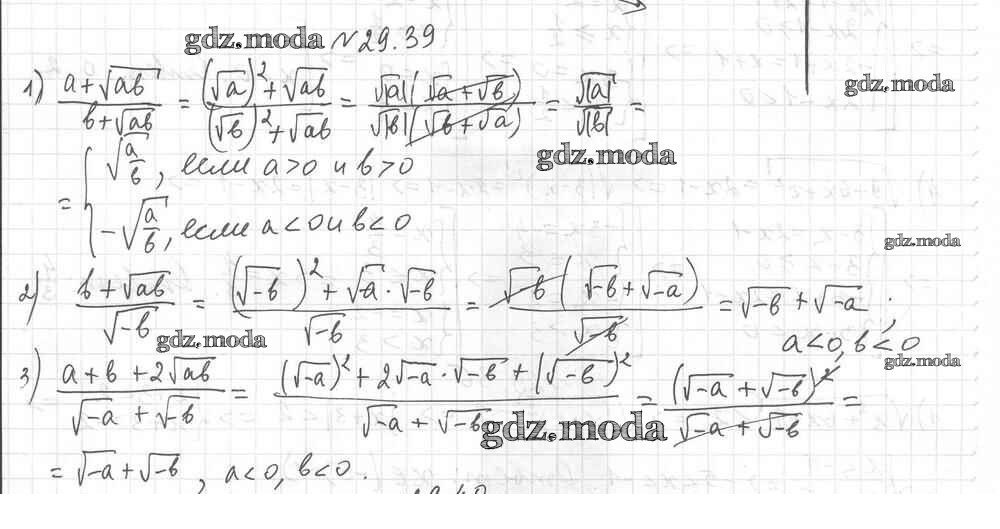 gdz.moda №29.39
1) (a+√ab)/(b+√ab) = ((√a)²+√ab)/((√b)²+√ab) = (√|a|(√a+√b))/(√|b|(√b+√a)) = √|a|/√|b| =
gdz.moda
gdz.moda
= { √(a/b), если a>0 и b>0
-√(a/b), если a<0 и b<0
gdz.moda
2) (b+√ab)/√-b = ((√-b)²+√-a·√-b)/√-b = (√-b(√-b+√-a))/√-b = √-b+√-a;
gdz.moda
a<0, b<0
gdz.moda
3) (a+b+2√ab)/(√-a+√-b) = ((√-a)²+2√-a·√-b+(√-b)²)/(√-a+√-b) = (√-a+√-b)²/(√-a+√-b) =
gdz.moda
= √-a+√-b, a<0, b<0.